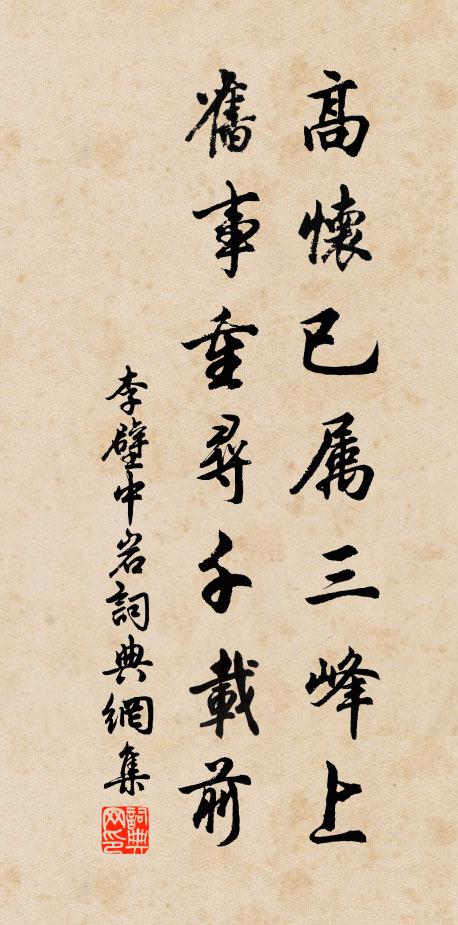 高懷已属三峰上
舊事重尋千載前
李壁中岩詞典網集
詞典网印